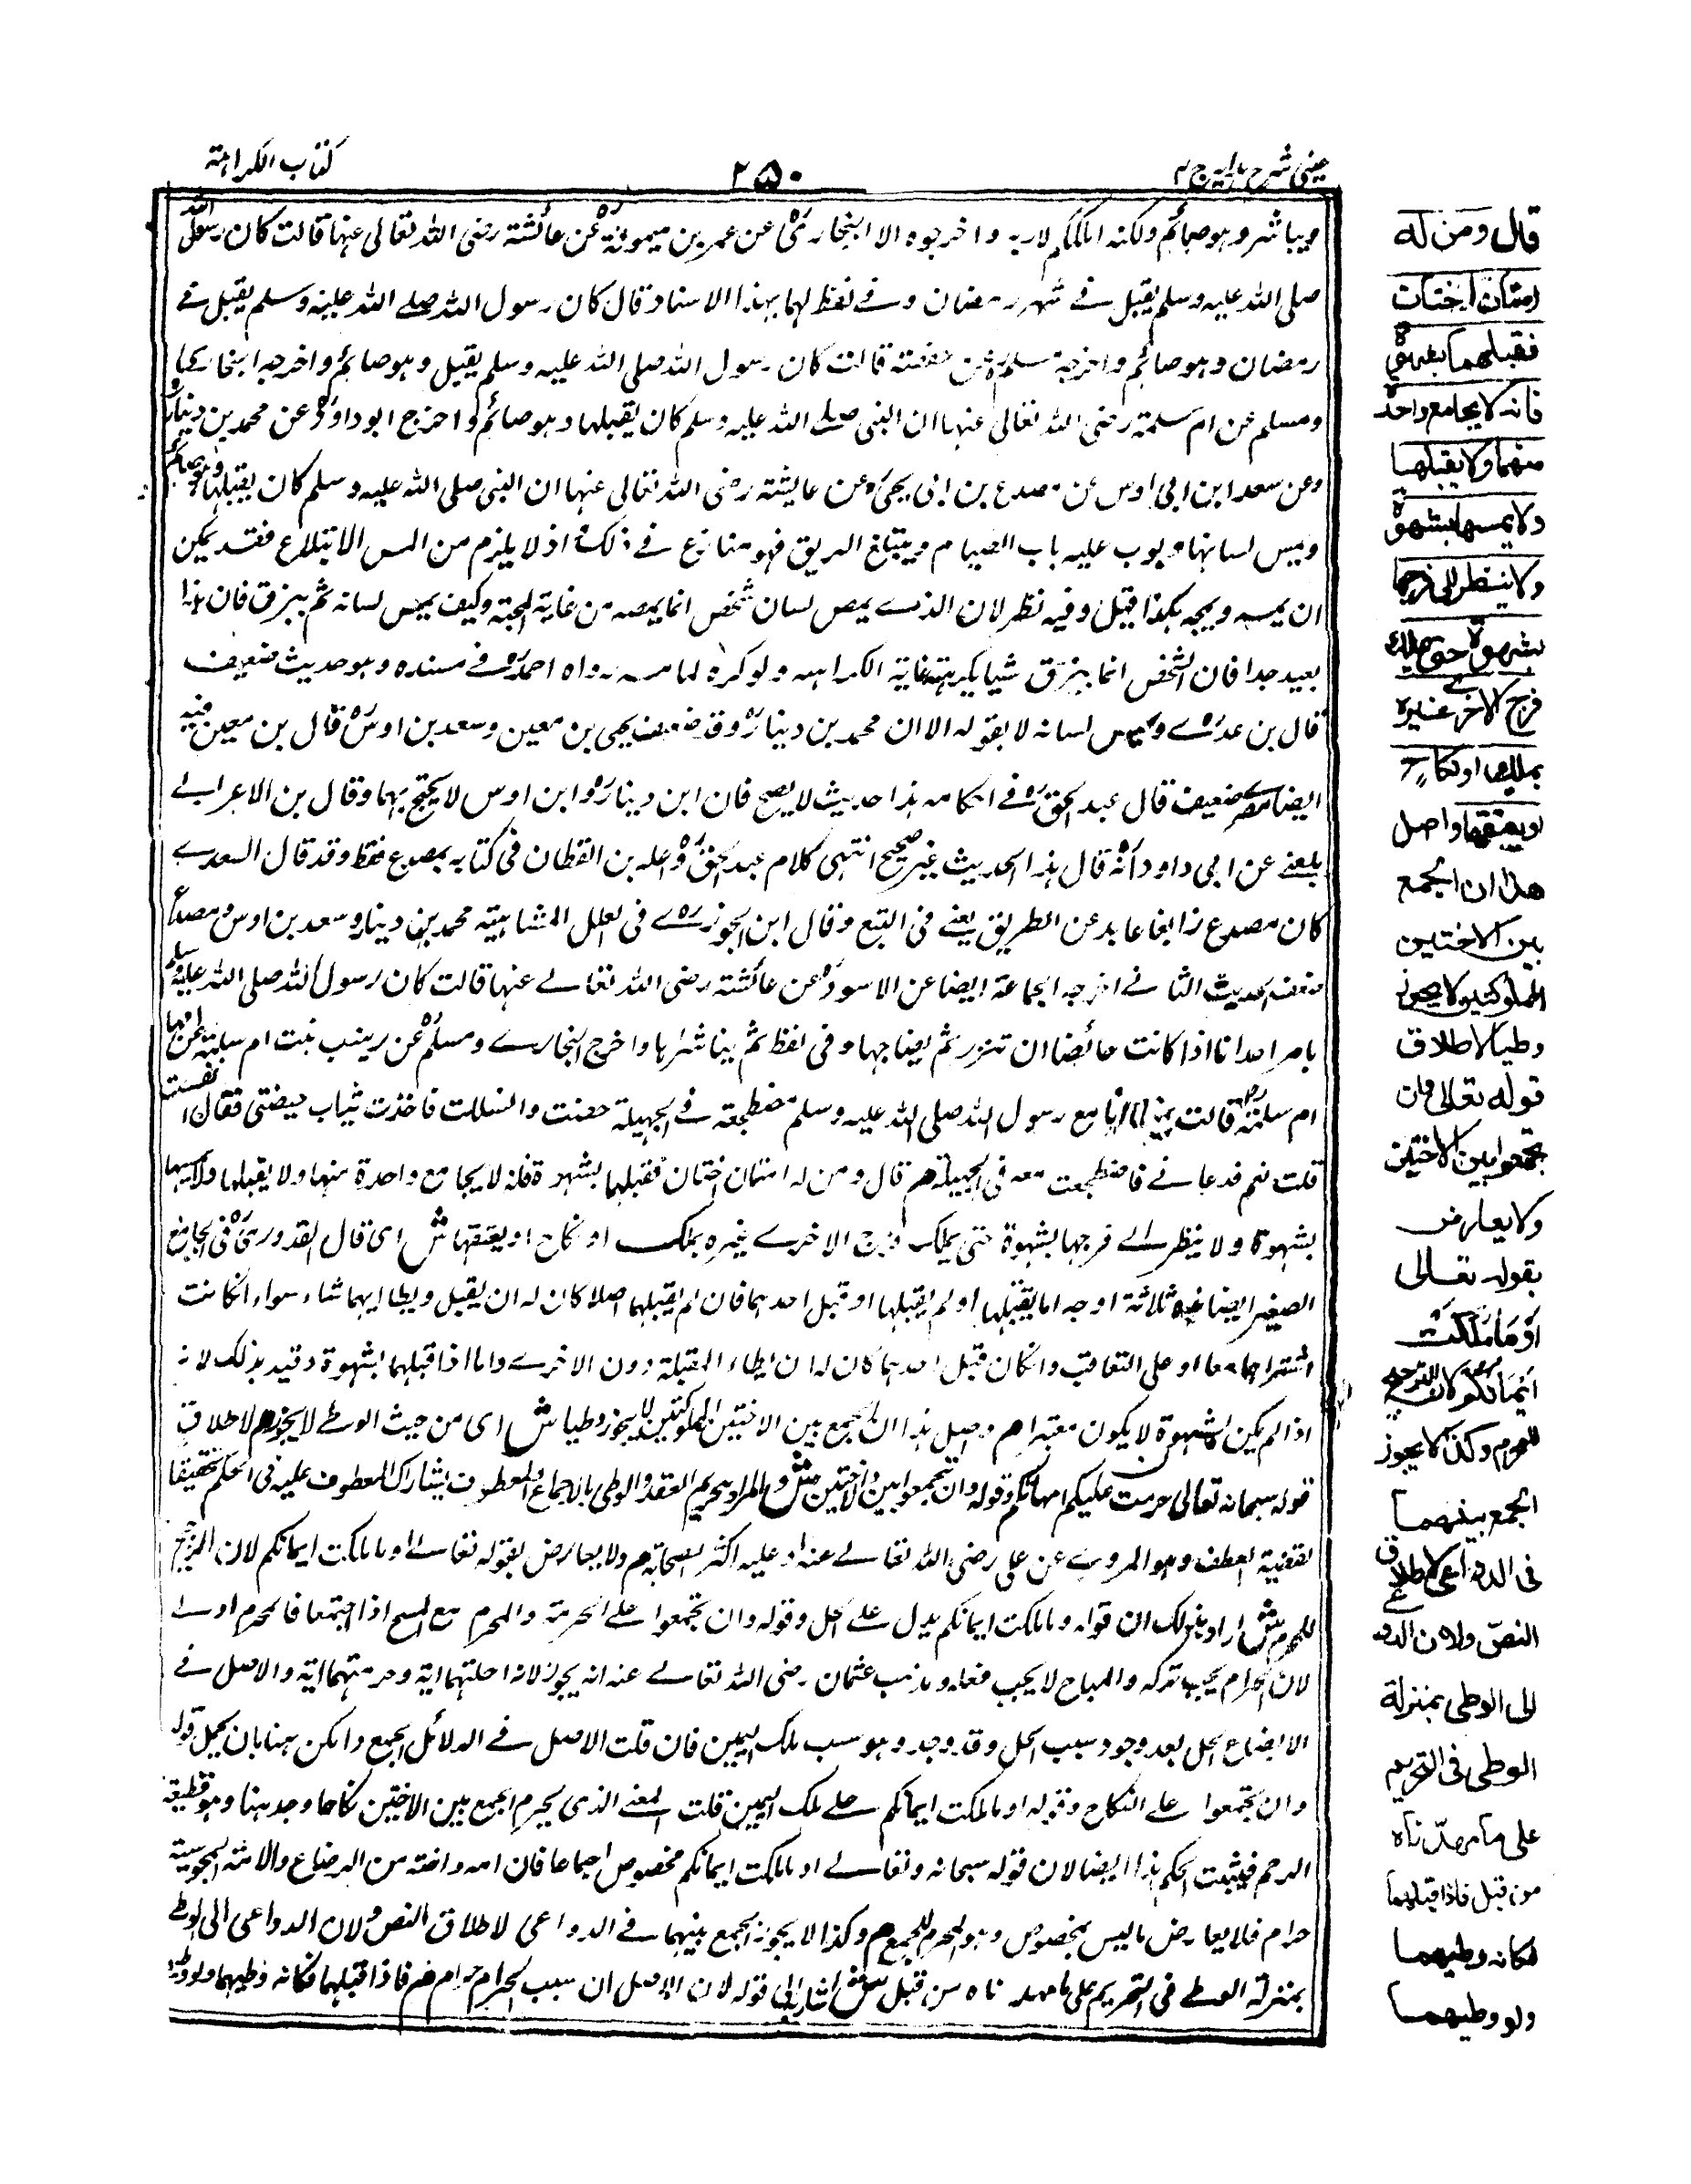 عينى شرح هدايه ج ٤
٢٥٠
كتاب الكراهية
ويباشر وهو صائم ولكنه املككم لاربه واخرجوه الا البخارىؒ عن عمر بن ميمونةؒ عن عائشة رضى الله تعالى عنها قالت كان رسول الله
صلى الله عليه وسلم يقبل فے شهر رمضان وفے لفظ لهما بهذا الاسناد قال كان رسول الله صلے الله عليه وسلم يقبل فے
رمضان وهو صائم واخرجه مسلمؒ عن حفصة قالت كان رسول الله صلى الله عليه وسلم يقبل وهو صائم واخرجه البخارى
ومسلم عن ام سلمة رضى الله تعالى عنها ان النبى صلے الله عليه وسلم كان يقبلها وهو صائم واخرج ابو داودؒ عن محمد بن دينار
وعن سعد ابن ابى اوس عن مصدع بن ابى يحيىؒ وعن عايشة رضى الله تعالى عنها ان النبى صلى الله عليه وسلم كان يقبلها وهو صائم
ويمص لسانها وبوب عليه باب الصيام ويبتلع الريق فهو منازع فے ذلك اذ لا يلزم من المس الابتلاع فقد يمكن
ان يمصه ويمجه هكذا قيل وفيه نظر لان الذے يمص لسان شخص انما يمصه من غاية المحبة وكيف يمص لسانه ثم يبزق فان هذا
بعيد جدا فان الشخص انما يبزق شيا يكرهه غاية الكراهه ولو كره لما مسه رواه احمدؒ فے مسنده وهو حديث ضعيف
قال بن عدےؒ ويمص لسانه لا يقوله الا ان محمد بن دينارؒ وقد ضعفه يحيى بن معين وسعد بن اوسؒ قال بن معين فيه
ايضا بصرى ضعيف قال عبد الحقؒ فے احكامه هذا حديث لا يصح فان ابن دينارؒ وابن اوس لا يحتج بهما وقال بن الاعرابے
بلغنے عن ابى داود انه قال هذا الحديث غير صحيح انتهى كلام عبد الحقؒ واعله بن القطان فى كتابه بمصدع فقط وقد قال السعدے
كان مصدع زايغا عايد عن الطريق يعنے فى التبع وقال ابن الجوزےؒ فى العلل المتناهية محمد بن دينار وسعد بن اوس ومصدع
ضعفه الحديث الثانے اخرجه الجماعة ايضا عن الاسودؒ عن عائشة رضى الله تعالے عنها قالت كان رسول الله صلى الله عليه وسلم
يامر احدانا اذا كانت حائضا ان تتزر ثم يضاجعها وفى لفظ ثم يباشرها واخرج البخارے ومسلمؒ عن زينب بنت ام سلمة عن امها
ام سلمة قالت بينا انا مع رسول الله صلى الله عليه وسلم مضطجعة فے الجهيلة حضت والنسللت فاخذت ثياب حيضتى فقال انفست
قلت نعم فدعانے فاضطجعت معه فى الجهيلة م قال ومن له امتان اختان فقبلهما بشهوة فانه لا يجامع واحدة منهما ولا يقبلها ولا يمسها
بشهوة ولا ينظر الے فرجها بشهوة حتى يملك فرج الاخرے غيره بملك او نكاح او يعتقها ش اى قال القدورىؒ فى الجامع
الصغير ايضا فيه ثلاثة اوجه اما يقبلهما او لم يقبلهما او قبل احدهما فان لم يقبلهما اصلا كان له ان يقبل ويطا ايهما شاء سواء انكانت
اشتراهما معا او على التعاقب وانكان قبل احدهما كان له ان يطاء المقبلة دون الاخرے واما اذا قبلهما بشهوة وقيد بذلك لانه
اذا لم يكن بالشهوة لا يكون معتبرا م واصل هذا ان الجمع بين الاختين المملوكتين لا يجوز وطيا ش اى من حيث الوطے لا يجوز م لاطلاق
قوله سبحانه تعالى حرمت عليكم امهاتكم وقوله وان تجمعوا بين الاختين ش والمراد بتحريم العقد والوطى بالاجماع والمعطوف يشارك المعطوف عليه فى الحكم تحقيقا
لقضية العطف وهو المروے عن على رضى الله تعالے عنه او عليه اكثر الصحابة م ولا يعارض بقوله تعالے او ما ملكت ايمانكم لان الترجيح
للمحرم ش اراد بذلك ان قوله وما ملكت ايمانكم يدل علے الحل وقوله وان تجمعوا علے الحرمة والمحرم مع المبيح اذا اجتمعا فالمحرم اولے
لان الحرام يجب تركه والمباح لا يجب فعله ومذهب عثمان رضى الله تعالے عنه انه يجوز لانه احلتهما اية وحرمتهما اية والاصل فے
الابضاع الحل بعد وجود سبب الحل وقد وجد وهو سبب ملك اليمين فان قلت الاصل فے الدلائل الجمع وامكن هنا بان يحمل قوله
وان تجمعوا علے النكاح وقوله او ما ملكت ايمانكم علے ملك اليمين قلت المعنے الذى يحرم الجمع بين الاختين نكاحا وجد هنا وهو قطيعة
الرحم فيثبت الحكم هذا ايضا لان قوله سبحانه وتعالے او ما ملكت ايمانكم مخصوص اجماعا فان امه واخته من الرضاع والامة المجوسية
حرام فلا يعارض ما ليس بمخصوص وهو المحرم للجمع م وكذا لا يجوز الجمع بينهما فے الدواعى لاطلاق النص ولان الدواعى الى الوطے
بمنزلة الوطے فى التحريم على ما مهدناه من قبل ش اشار الى قوله لان الاصل ان سبب الحرام حرام م فاذا قبلهما فكانه وطيهما ولو وطيهما
قال ومن له
امتان اختان
فقبلهما بشهوة
فانه لا يجامع واحدة
منهما ولا يقبلها
ولا يمسها بشهوة
ولا ينظر الى فرجها
بشهوة حتى يملك
فرج الاخرى غيره
بملك او نكاح
او يعتقها واصل
هذا ان الجمع
بين الاختين
المملوكتين لا يجوز
وطيا لاطلاق
قوله تعالى وان
تجمعوا بين الاختين
ولا يعارض
بقوله تعالى
او ما ملكت
ايمانكم لان الترجيح
للمحرم وكذا لا يجوز
الجمع بينهما
فى الدواعى لاطلاق
النص ولان الدواعى
الى الوطى بمنزلة
الوطى فى التحريم
على ما مهدناه
من قبل فاذا قبلهما
فكانه وطيهما
ولو وطيهما